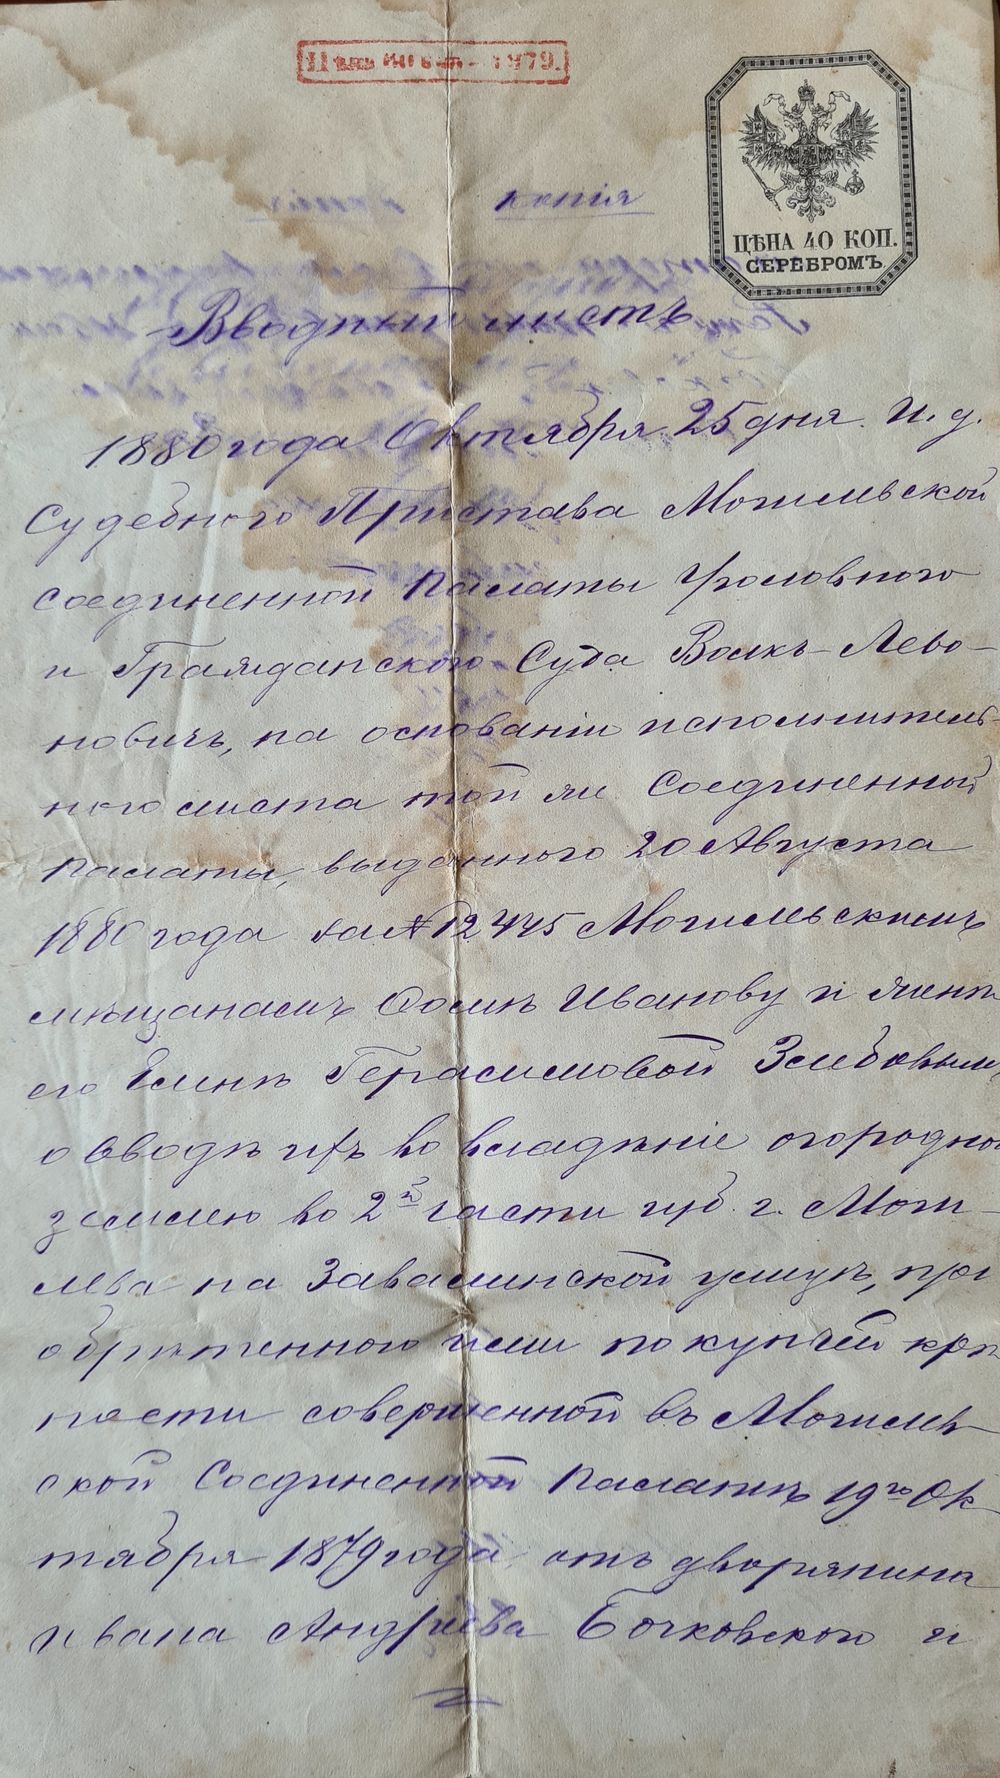 Цѣна 60 коп. 1879.
ЦѢНА 40 КОП.
СЕРЕБРОМЪ
копія
Вводный листъ
1880 года Октября 25 дня. И. д.
Судебного Пристава Могилевской
Соединенной Палаты Уголовного
и Гражданского Суда Волкъ-Лево-
новичъ, на основаніи исполнитель-
ного листа той же Соединенной
Палаты, выданного 20 Августа
1880 года за № 12445 Могилевскимъ
мѣщанамъ Ѳомѣ Иванову и женѣ
его Еленѣ Герасимовой
о вводѣ ихъ во владѣніе огородной
землею во 2й части губ. г. Моги-
лева на Завалинской улицѣ, прі
обрѣтенного ими по купчей крѣ
пости совершенной въ Могилев-
ской Соединенной Палатѣ 19го Ок
тября 1879 года отъ дворянина
Ивана Андрѣева Бочковского и